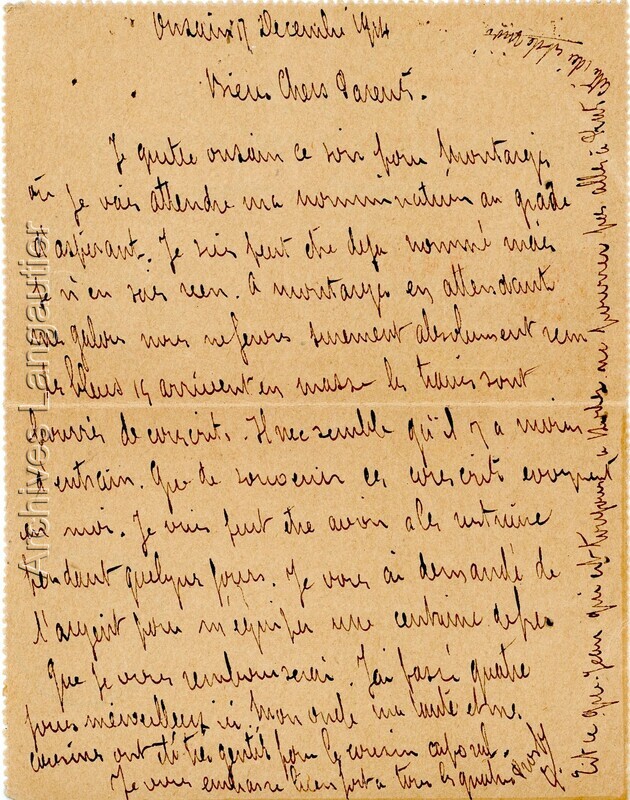 Onzain 17 Decembre 1914
Bien Chers Parents.
Je quitte onzain ce soir pour Montargis
où je vais attendre ma nomminnation au grade
d'aspirant. Je suis peut etre deja nommé mais
Je n'en sais rien. A montargis en attendant
mes galons nous ne ferons surement absolument rien
Les bleus 15 arrivent en masse les trains sont
bourrés de conscrits. Il me semble qu'il y a moins
d'entrain. Que de souvenir ces conscrits evoquent
en moi. Je vais peut etre avoir a les instruire
pendant quelques jours. Je vous ai demandé de
l'argent pour m'equiper une centaine de frs
que je vous rembourserai. J'ai passé quatre
jours merveilleux ici. Mon oncle ma tante et mes
cousines ont été très gentils pour le cousin caporal.
Je vous embrasse bien fort a tous les quatre
Est ce que Jean qui est toujours a ne pourrai pas aller à
Archives Langautier